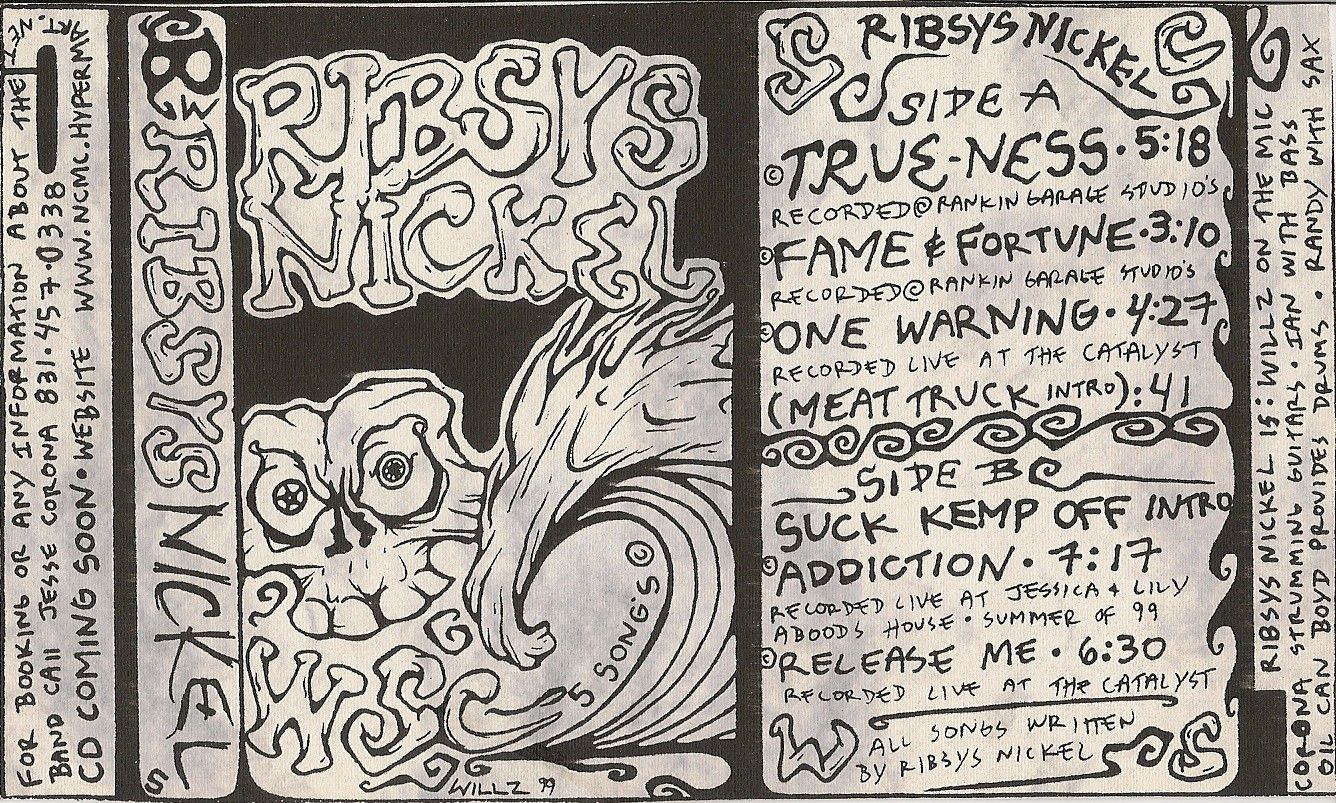 FOR BOOKING OR ANY INFORMATION ABOUT THE
BAND CAll JESSE CORONA 831.457.0338
CD COMING SOON • WEBSITE WWW.NCMC.HYPERMART.NET
RIBSYS NICKEL
RIBSYS
NICKEL
5 SONG'S ©
WILLZ 99
RIBSYS NICKEL
SIDE A
© TRUE-NESS • 5:18
RECORDED@RANKIN GARAGE STUDIO'S
© FAME & FORTUNE • 3:10
RECORDED@RANKIN GARAGE STUDIO'S
© ONE WARNING • 4:27
RECORDED LIVE AT THE CATALYST
(MEAT TRUCK INTRO) :41
SIDE B
SUCK KEMP OFF INTRO
© ADDICTION • 7:17
RECORDED LIVE AT JESSICA & LILY
ABOODS HOUSE • SUMMER OF 99
© RELEASE ME • 6:30
RECORDED LIVE AT THE CATALYST
ALL SONGS WRITTEN
BY RIBSYS NICKEL
RIBSYS NICKEL IS: WILLZ ON THE MIC
CORONA STRUMMING GUITARS • IAN WITH BASS
OIL CAN BOYD PROVIDES DRUMS • RANDY WITH SAX